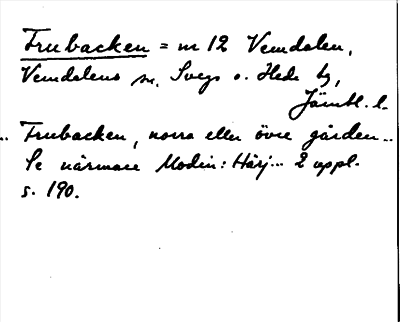 Frubacken = nr 12 Vemdalen,
Vemdalens sn, Svegs o. Hede tg,
Jämtl. l.
.. Frubacken, norra eller övre gården ..
Se närmare Modin: Härj... 2 uppl.
s. 190.